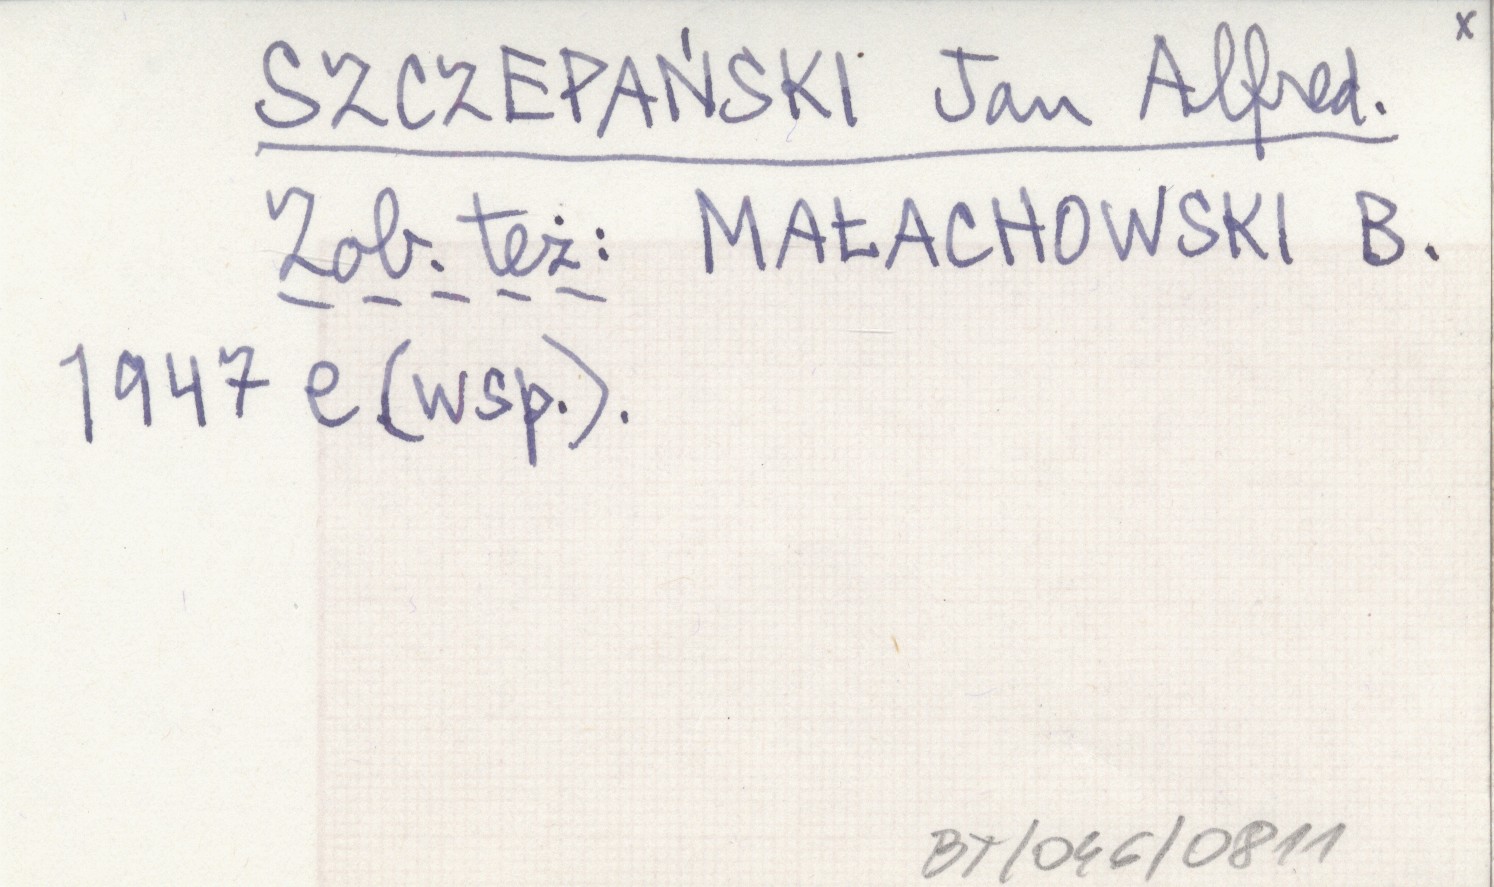 x
SZCZEPAŃSKI Jan Alfred.
Zob. też: MAŁACHOWSKI B.
1947 e (wsp.).
BT/046/0811